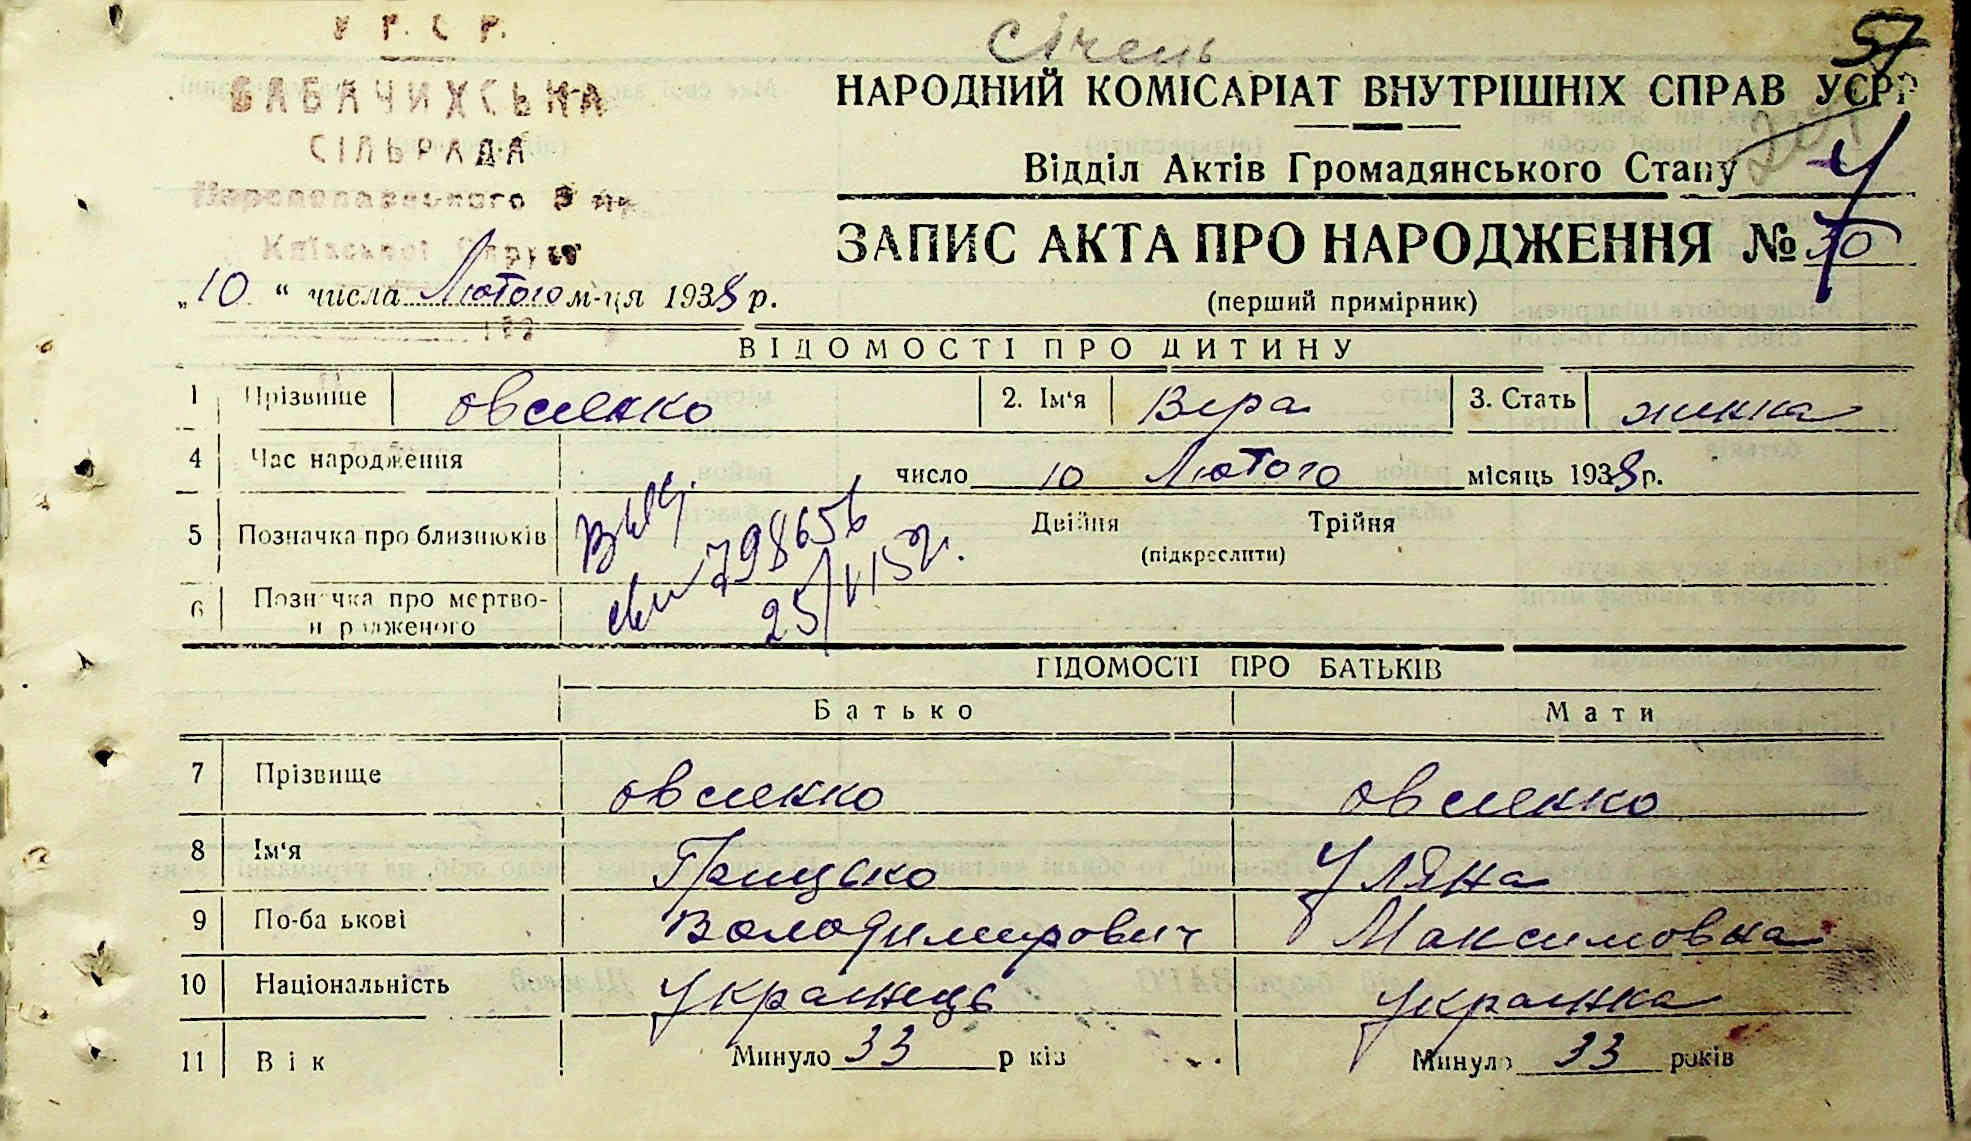 У Р. С Р.
БАБАЧИХСЬКА
СІЛЬРАДА
січень
57
НАРОДНИЙ КОМІСАРІАТ ВНУТРІШНІХ СПРАВ УСРР
Відділ Актів Громадянського Стану
ЗАПИС АКТА ПРО НАРОДЖЕННЯ № 30
(перший примірник)
„10“ числа Лютого м-ця 1938 р.
ВІДОМОСТІ ПРО ДИТИНУ
1 Прізвище Овсиенко 2. Ім'я Вера 3. Стать жинка
4 Час народження число 10 Лютого місяць 1938 р.
5 Позначка про близнюків Двійня Трійня
(підкреслити)
6 Позначка про мертво-
народженого
798656
25/VI 52г.
ВІДОМОСТІ ПРО БАТЬКІВ
Батько Мати
7 Прізвище Овсиенко Овсиенко
8 Ім'я Грицько Уляна
9 По-батькові Володимирович Максимовна
10 Національність Украинець Украинка
11 Вік Минуло 33 років Минуло 33 років